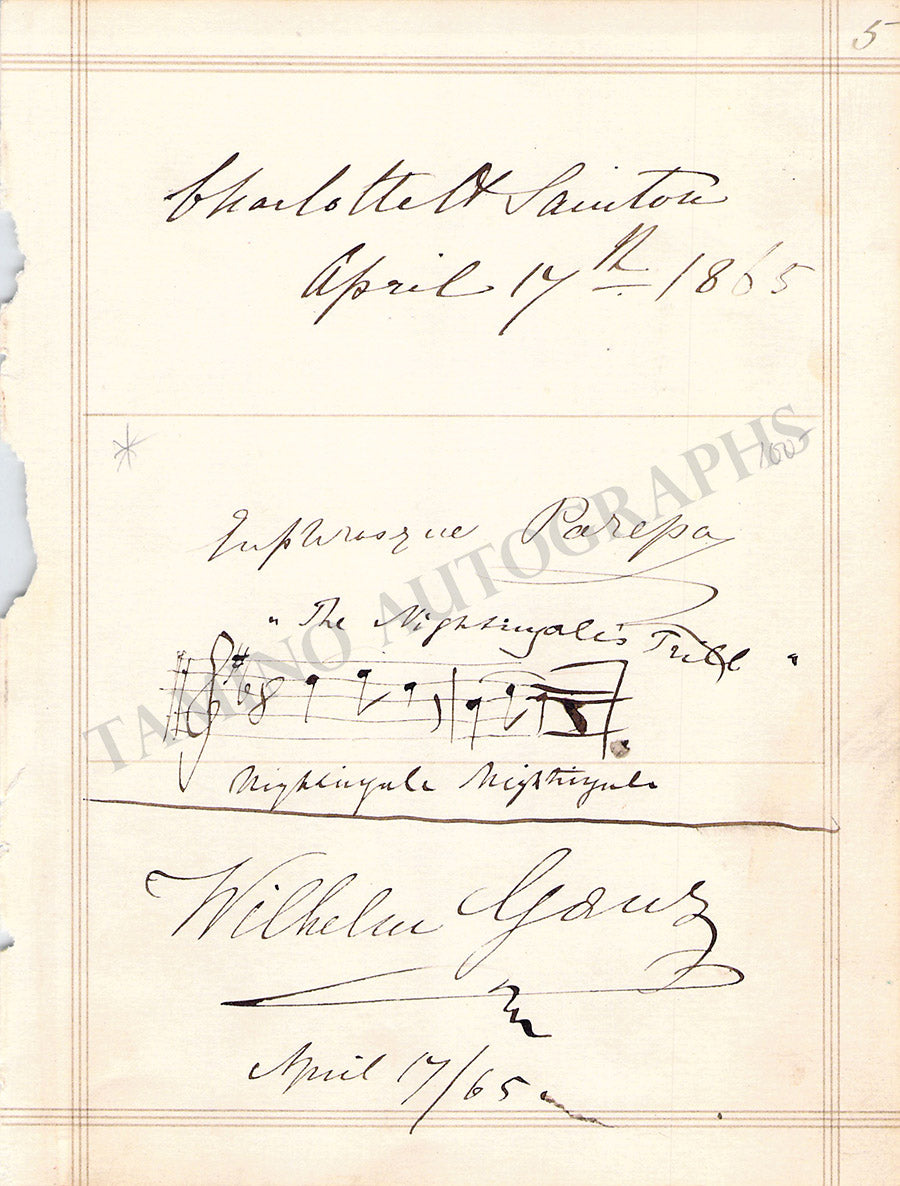 5
Charlotte H Sainton
April 17th 1865
*
100
Euphrosyne Parepa
" The Nightingale's Trill "
6 8
Nightingale Nightingale
Wilhelm Ganz
April 17/65
TAMINO AUTOGRAPHS